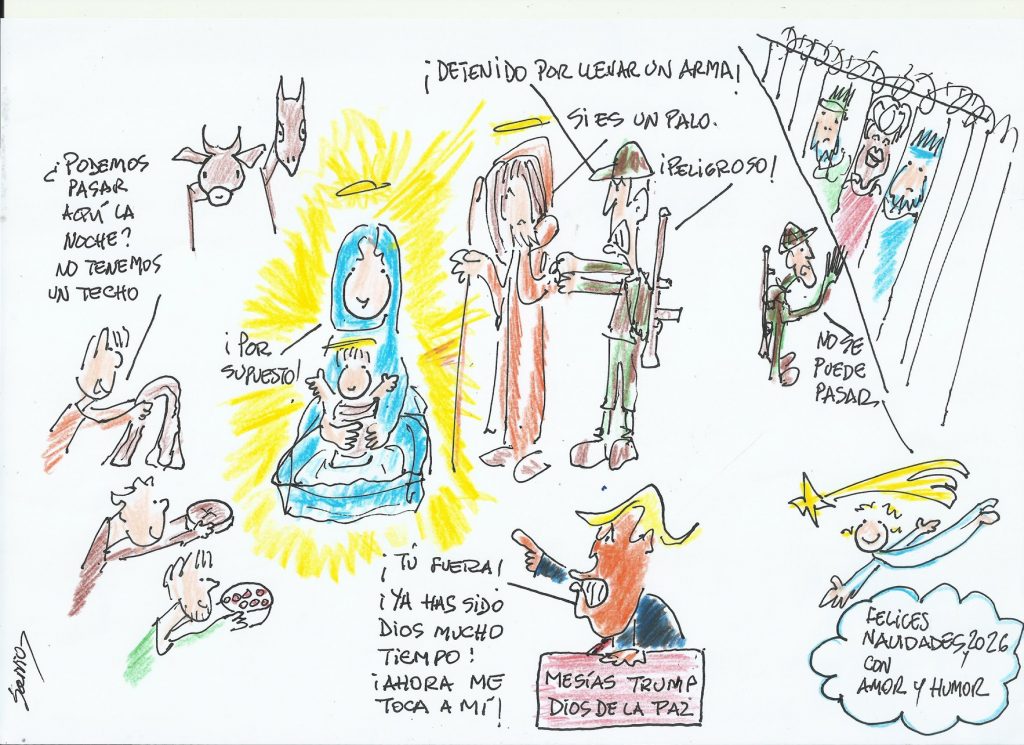 ¡DETENIDO POR LLEVAR UN ARMA!
SI ES UN PALO.
¡PELIGROSO!
¿PODEMOS
PASAR
AQUÍ LA
NOCHE?
NO TENEMOS
UN TECHO
¡POR
SUPUESTO!
NO SE
PUEDE
PASAR
¡TÚ FUERA!
¡YA HAS SIDO
DIOS MUCHO
TIEMPO!
¡AHORA ME
TOCA A MÍ!
MESÍAS TRUMP
DIOS DE LA PAZ
FELICES
NAVIDADES Y 2026
CON
AMOR Y HUMOR